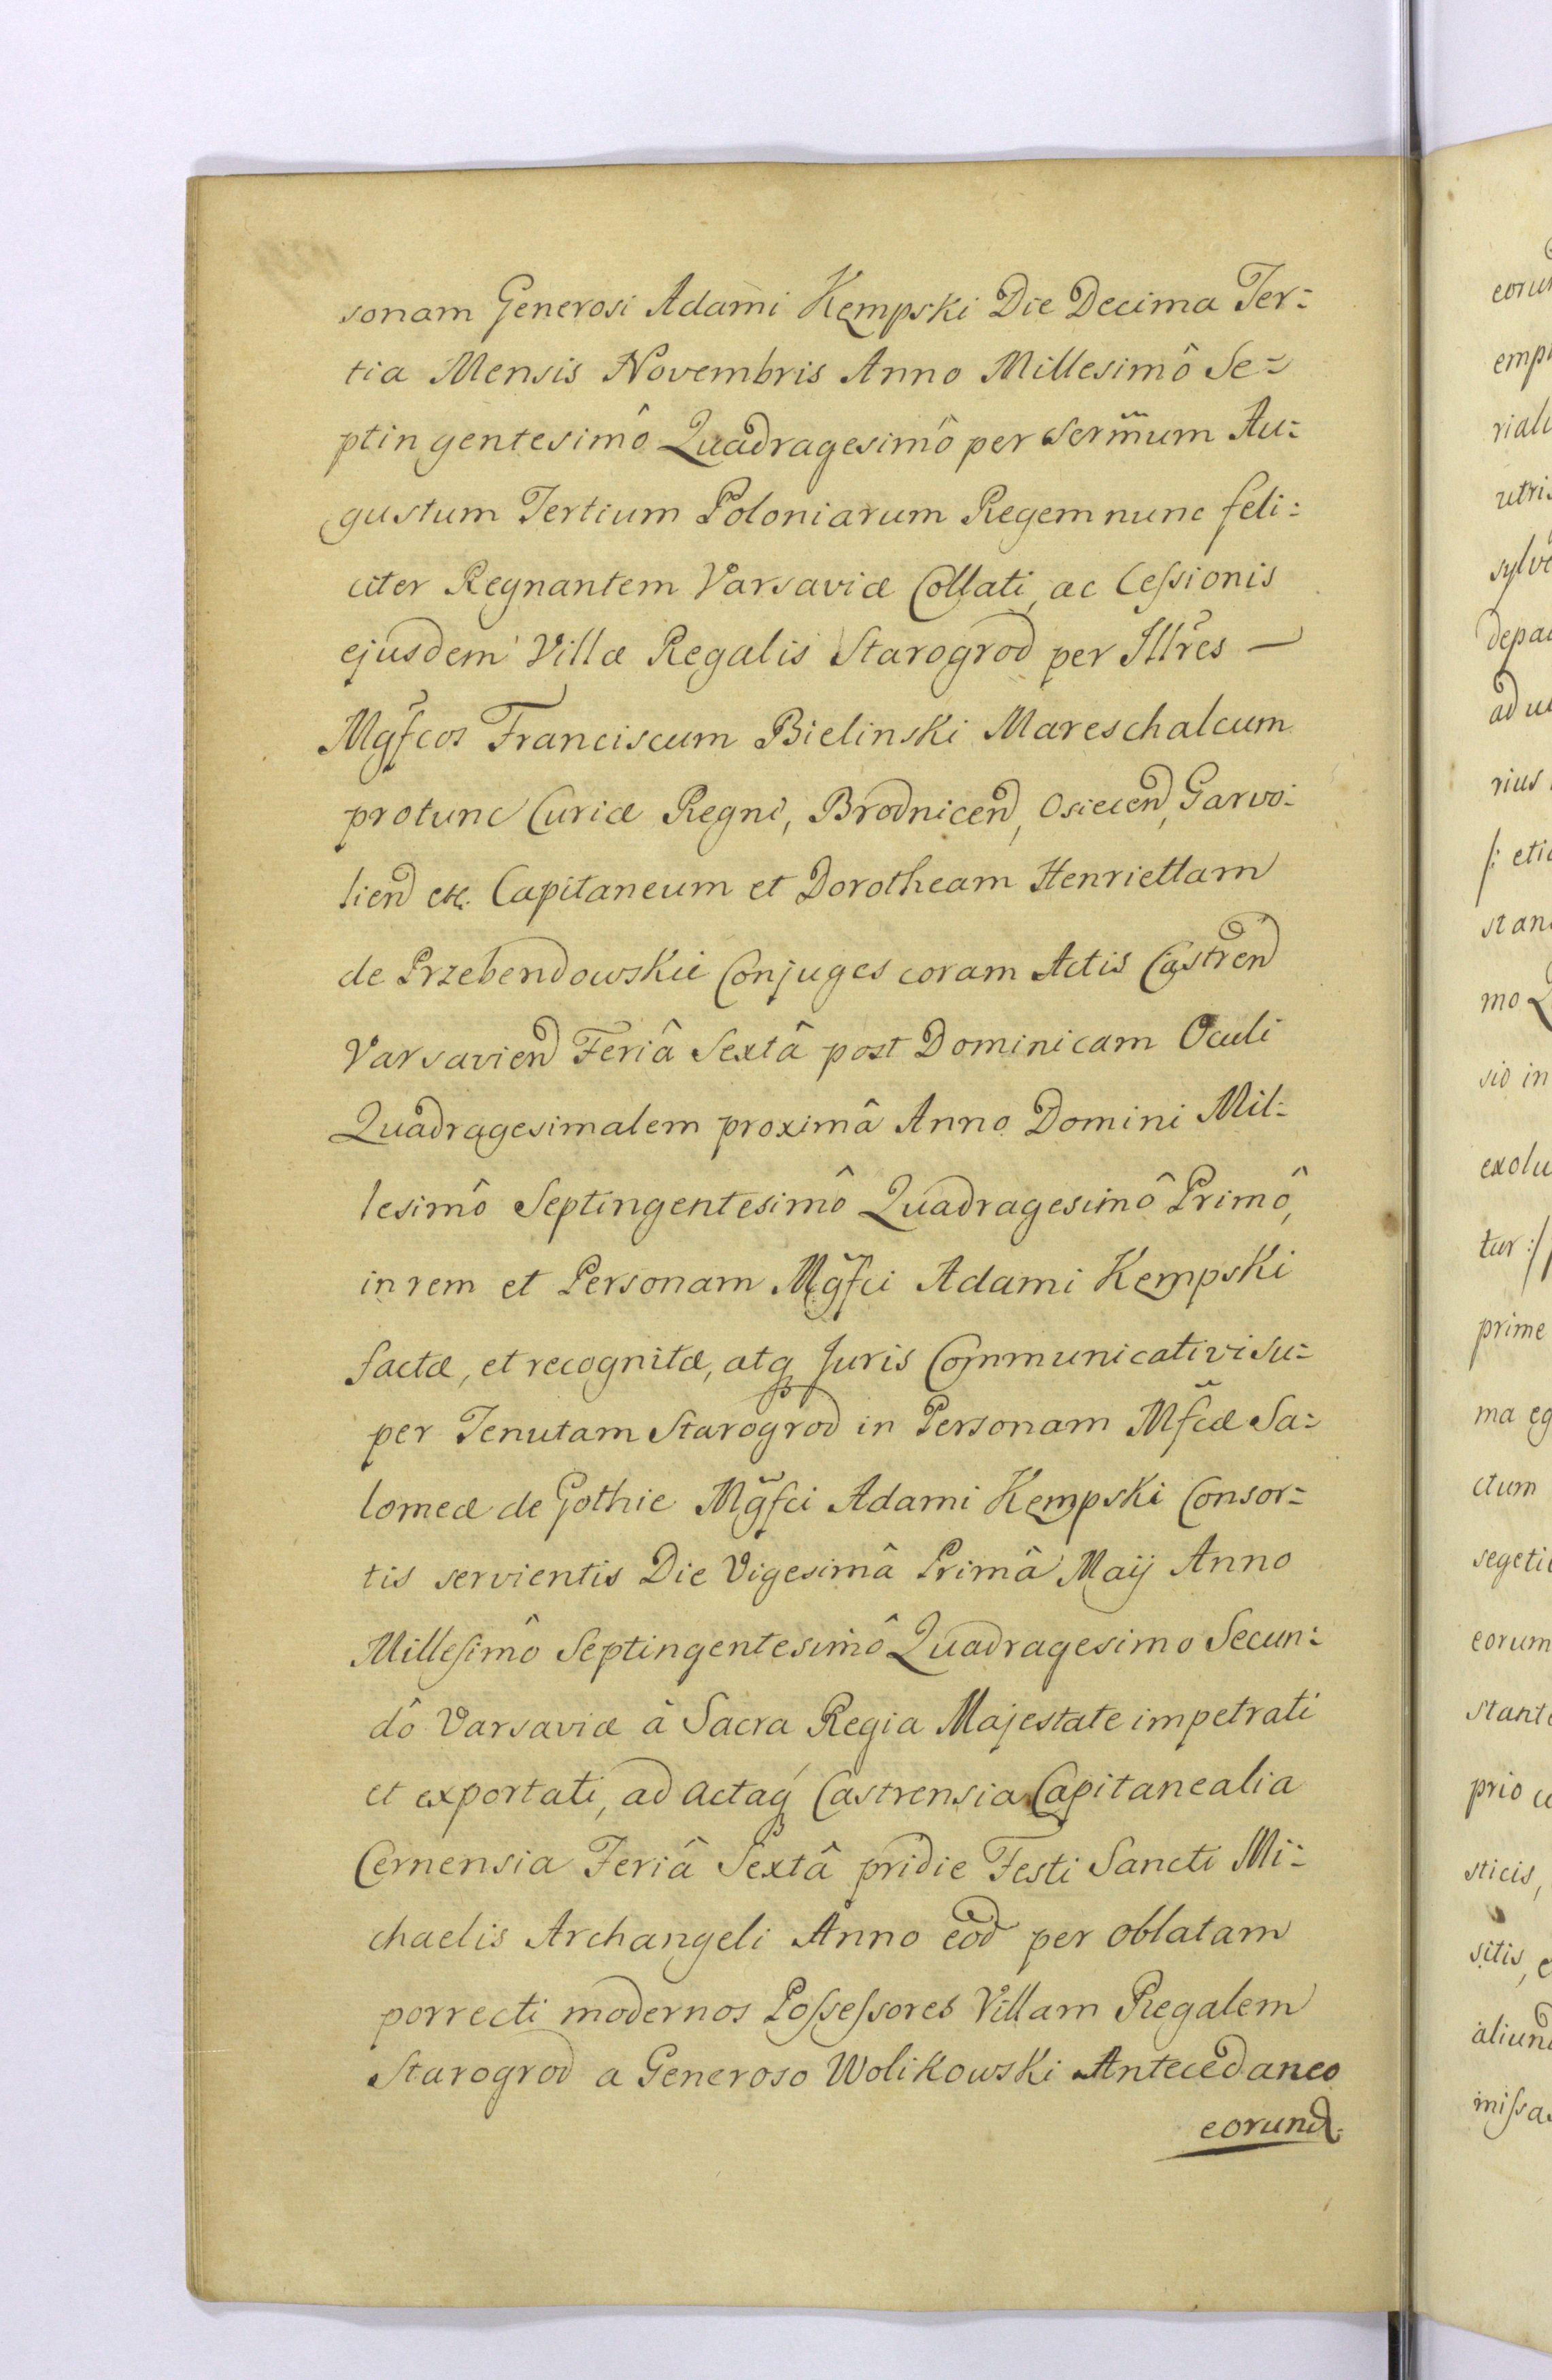 sonam Generosi Adami Kempski Die Decima Ter=
tia Mensis Novembris Anno Millesimô Se=
ptin gentesimô Quadragesimô per Serm̃um Au=
gustum Tertium Poloniarum Regem nunc feli=
citer Regnantem Varsaviæ Collati, ac Cessionis
ejusdem Villæ Regalis Starogrod per Illr̃es —
Mgf̃cos Franciscum Bielinski Mareschalcum
protunc Curiæ Regni, Brodnicen̄d, Osiecen̄d, Garwo=
lien̄d etc. Capitaneum et Dorotheam Henriettam
de Przebendowskie Conjuges coram Actis Castren̄d
Varsavien̄d Feriâ Sextâ post Dominicam Oculi
Quadragesimalem proximâ Anno Domini Mil=
lesimô Septingentesimô Quadragesimô Primô,
in rem et Personam Mg̃fci Adami Kempski
factæ, et recognitæ, atq Juris Communicativi su=
per Tenutam Starogrod in Personam Mf̃cæ Sa=
lomeæ de Gothie Mg̃fci Adami Kempski Consor=
tis servientis Die Vigesimâ Primâ Maij Anno
Millesimô Septingentesimô Quadragesimo Secun=
dô Varsaviæ â Sacra Regia Majestate impetrati
et exportati, ad actaq́ Castrensia Capitanealia
Cernensia Feriâ Sextâ pridie Festi Sancti Mi=
chaelis Archangeli Anno eod per oblatam
porrecti modernos Possessores Villam Regalem
Starogrod a Generoso Wolikowski Antecedaneo
eorund.
eorun
emp
riali
utri
sylv
depa
ad u
rius
/: eti
stan
mo Q
sio in
exolu
tur :/
prime
ma eg
ctum
segeti
eorum
stant
prio
sticis,
sitis,
aliun
missa